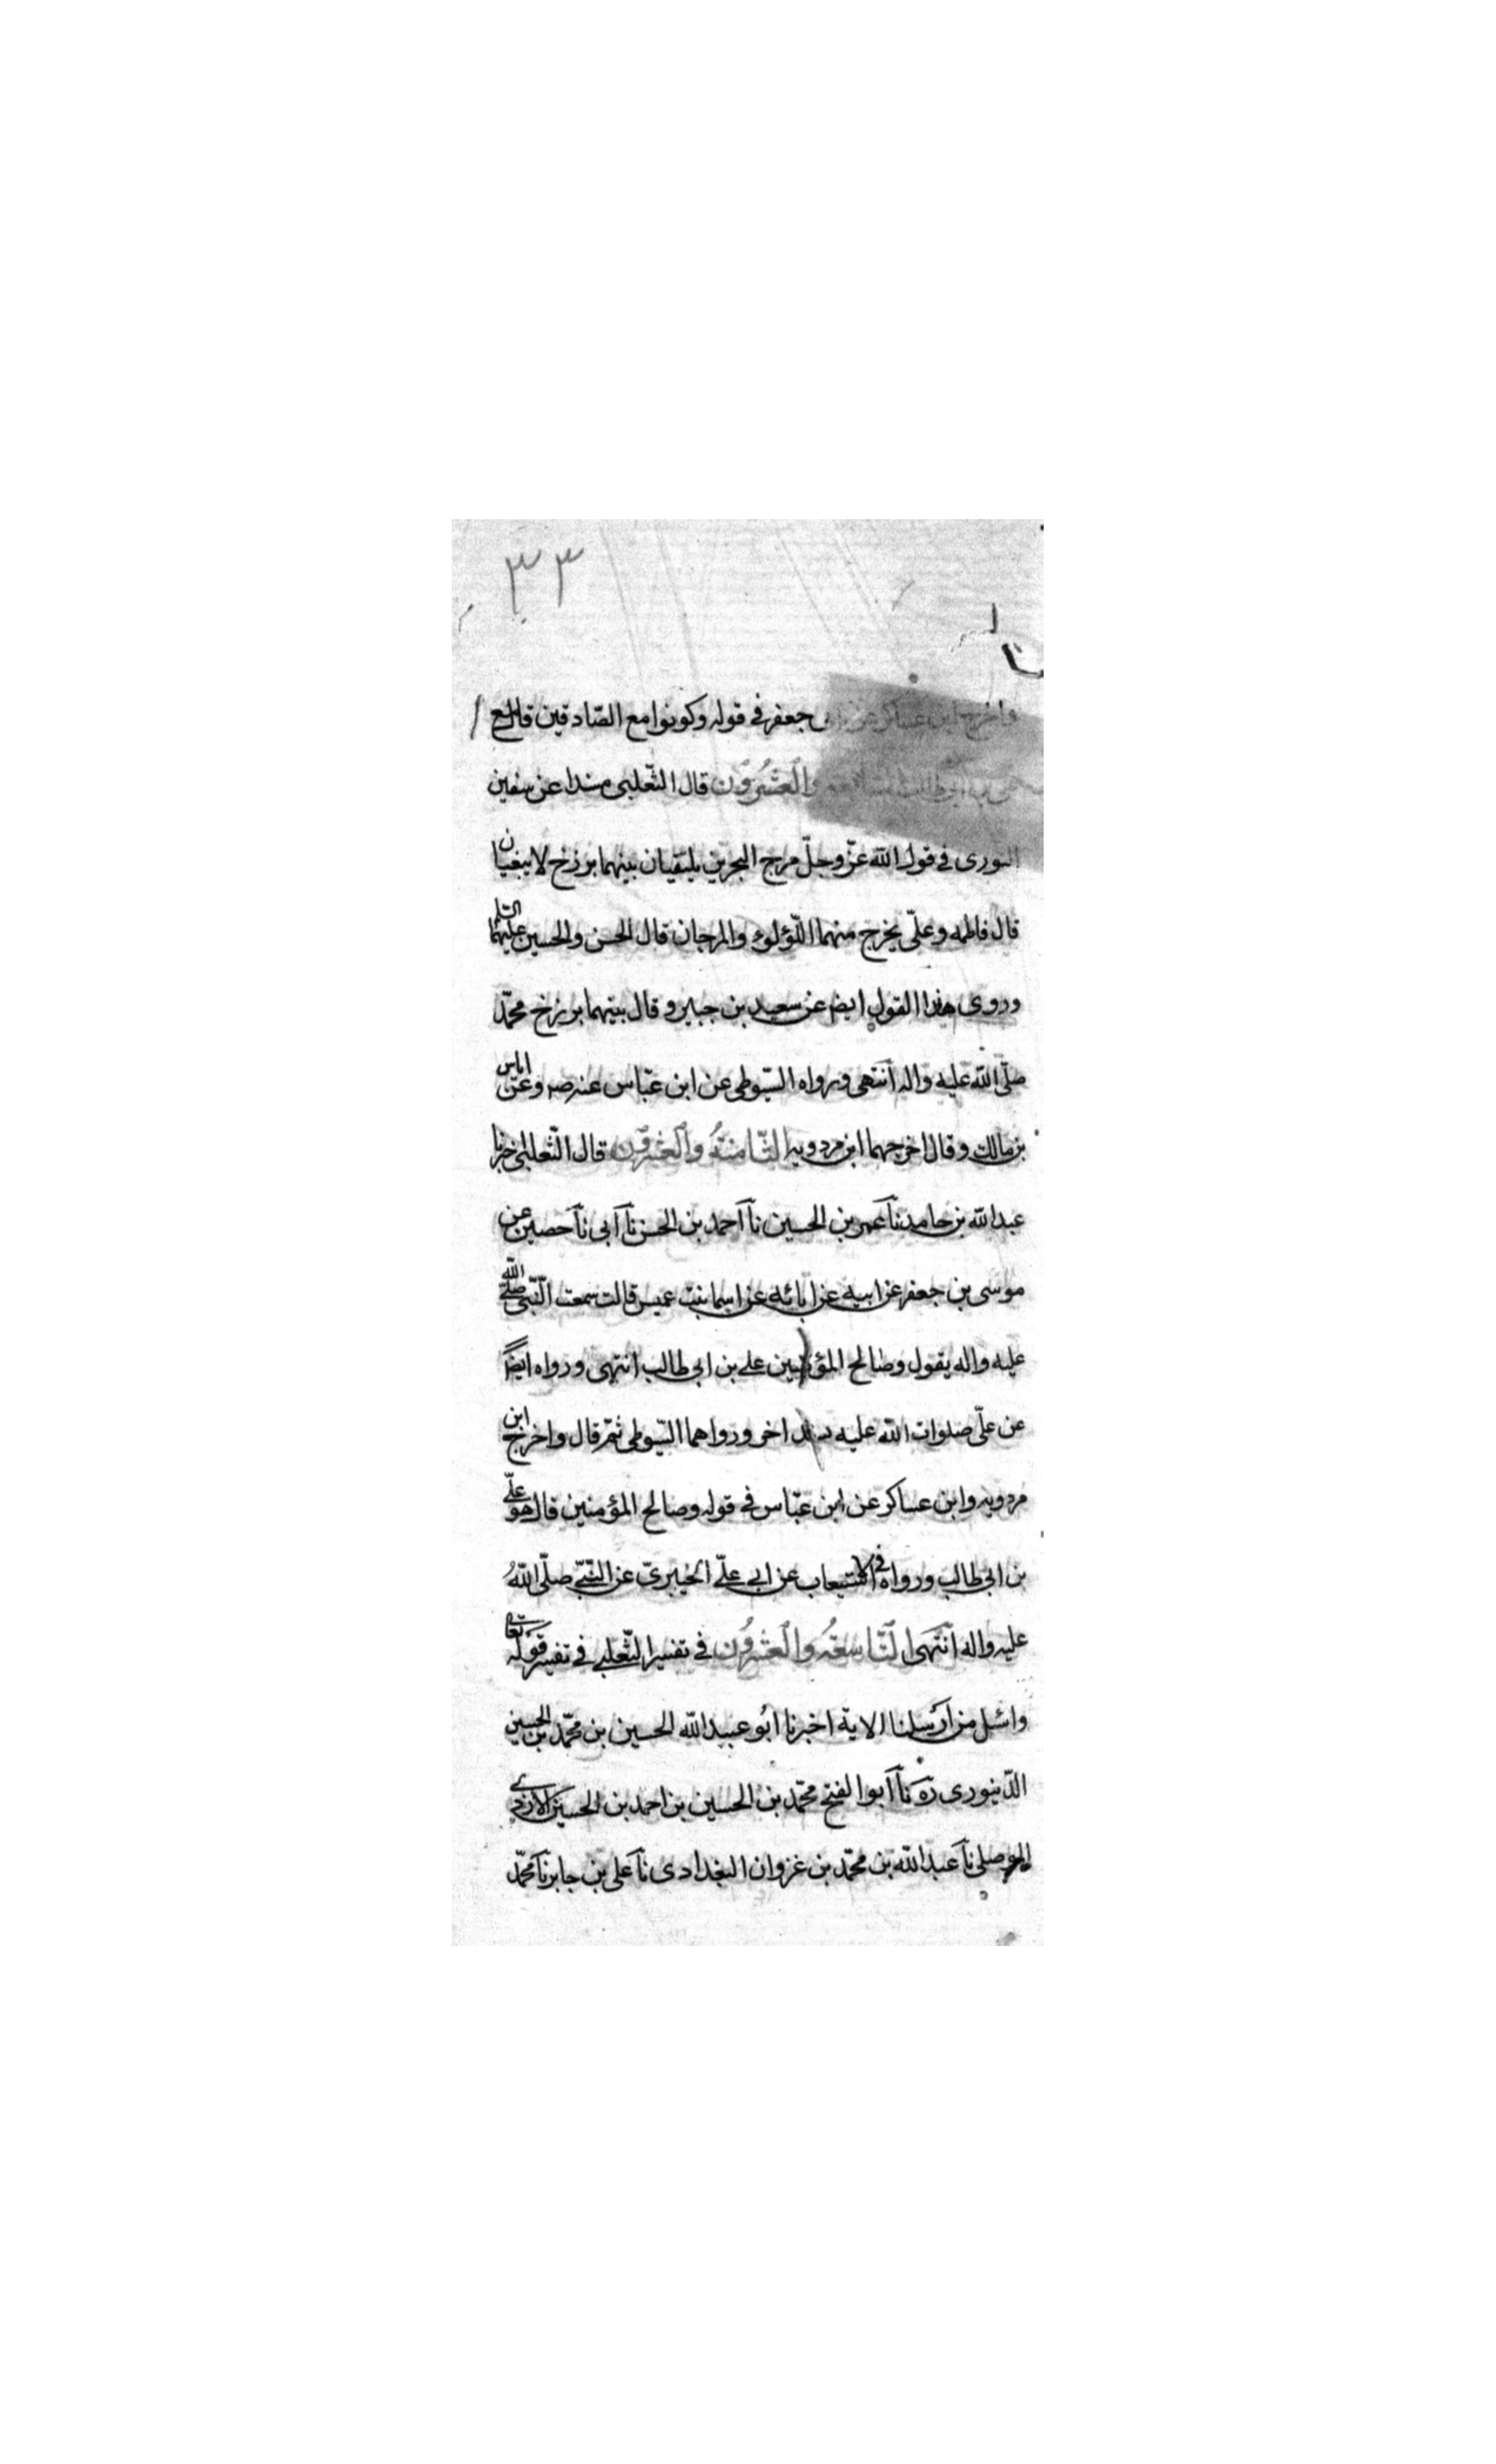 ٣٣
واخرج ابن عساكر عن ابى جعفر فى قوله وكونوا مع الصّادقين قال مع
على بن ابى طالب السابعة والعشرون قال الثّعلبى مسندا عن سفين
الثورى فى قول الله عزّ وجلّ مرج البحرين يلتقيان بينهما برزخ لا يبغيان
قال فاطمه وعلىّ يخرج منهما اللّؤلؤ والمرجان قال الحسن والحسين عليهما السلم
وروى هذا القول ايض عن سعيد بن جبير و قال بينهما برزخ محمّد
صلّى الله عليه واله انتهى ورواه السّيوطى عن ابن عبّاس عنه ص وعن اياس
بن مالك و قال اخرجهما ابن مردويه الثّامنة والعشرون قال الثّعلبى اخبرنا
عبد الله بن حامد نا عمر بن الحسين نا احمد بن الحسن نا ابى نا حصين عن
موسى بن جعفر عن ابيه عن ابائه عن اسما بنت عميس قالت سمعت النّبى صلّى الله
عليه واله يقول وصالح المؤمنين على بن ابى طالب انتهى ورواه ايضاً
عن علىّ صلوات الله عليه بسند اخر ورواهما السّيوطى ثمّ قال واخرج ابن
مردويه وابن عساكر عن ابن عبّاس فى قوله وصالح المؤمنين قال هو علىّ
بن ابى طالب ورواه فى الاستيعاب عن ابى علىّ الخيبرىّ عن النّبىّ صلّى اللهُ
عليه واله انتهى التّاسعة والعشرون فى تفسير الثّعلبى فى تفسير قوله تعا
واسئل من ارسلنا الاية اخبرنا ابو عبد الله الحسين بن محمّد بن الحسين
الدّينورى ره نا ابو الفتح محمّد بن الحسين بن احمد بن الحسين الازدى
الموصلى نا عبد الله بن محمّد بن غزوان البغدادى نا على بن جابر نا محمّد